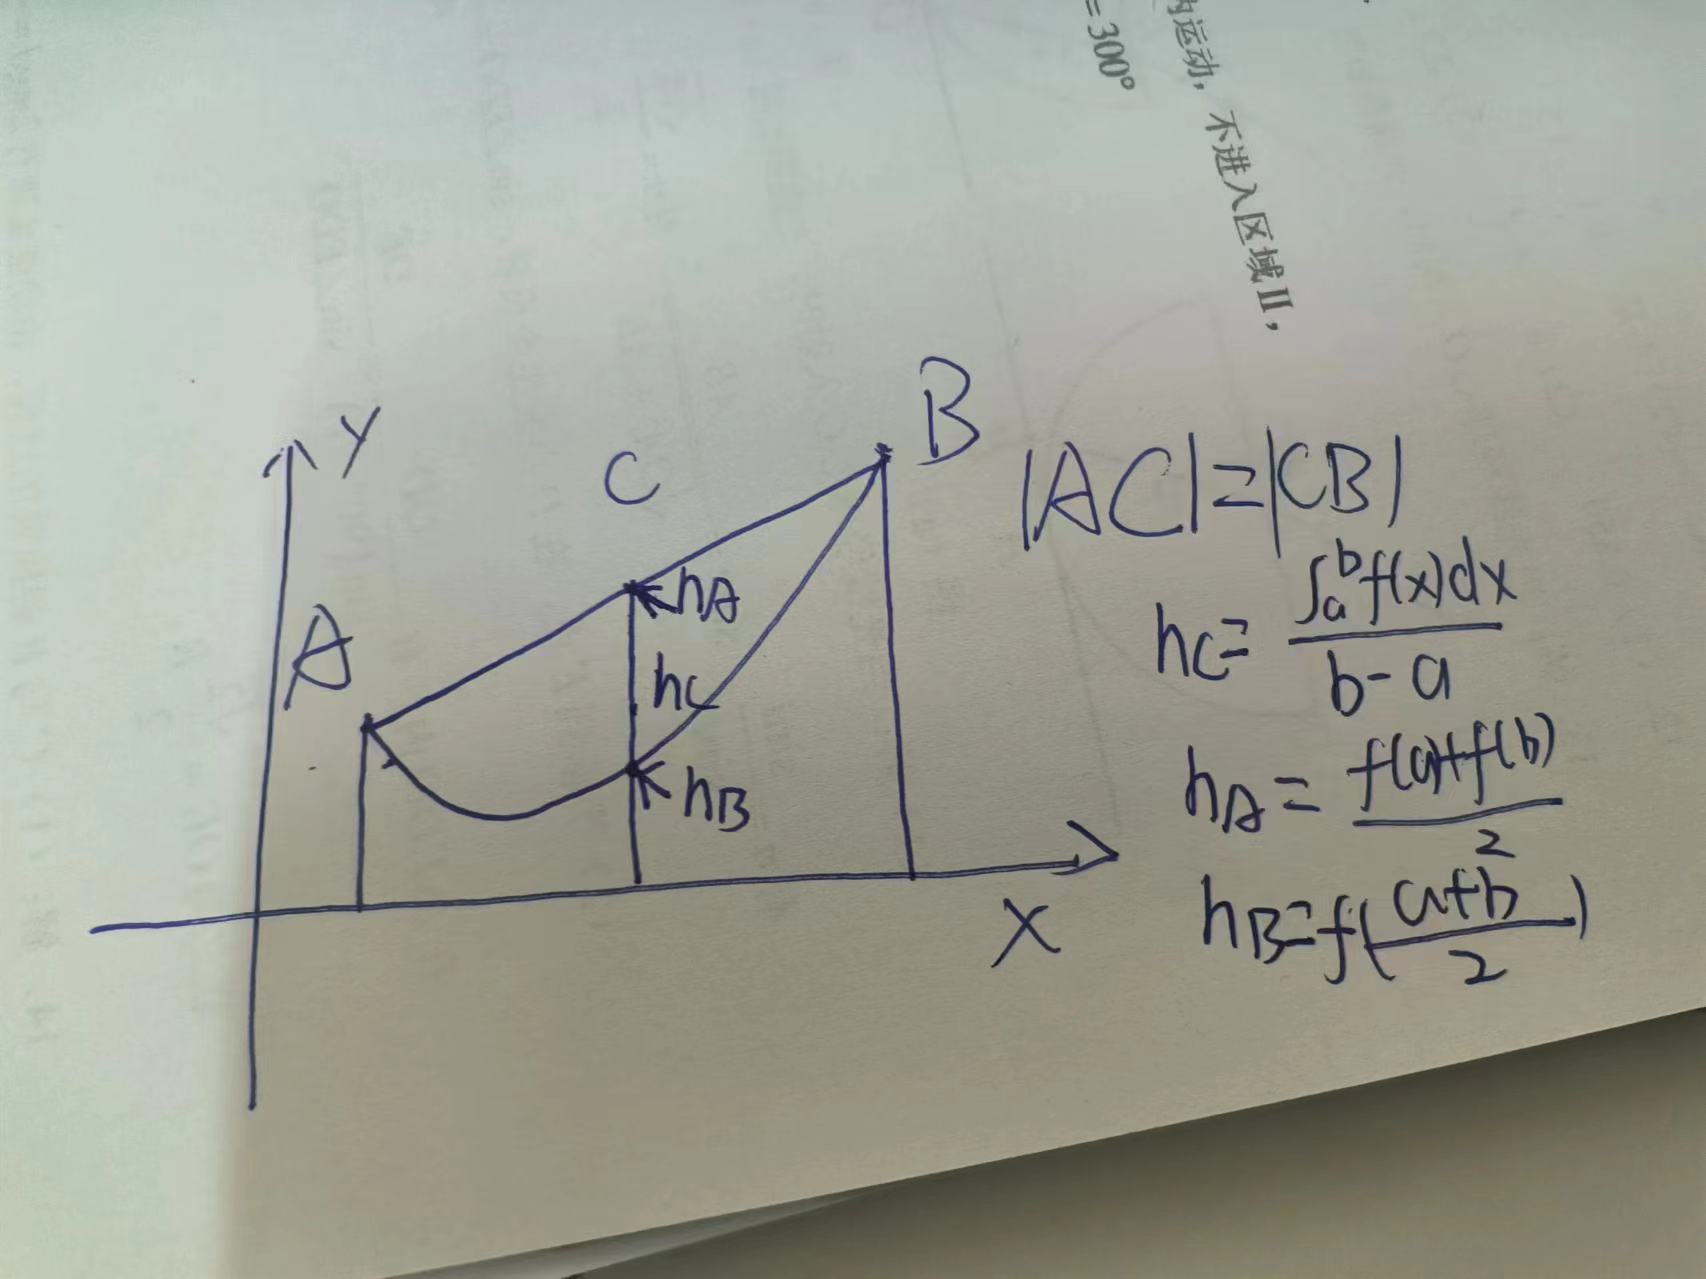 =300°
内运动，不进入区域Ⅱ，
y
B
C
|AC|=|CB|
A
hA
hC
hB
x
hC= ∫_a^b f(x)dx / b-a
hA= f(a)+f(b) / 2
hB=f(a+b / 2)